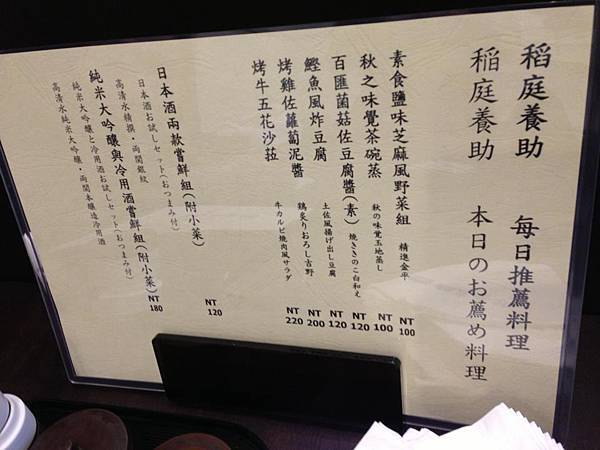 稻庭養助　每日推薦料理
稲庭養助　本日のお薦め料理
素食鹽味芝麻風野菜組　精進金平　NT 100
秋之味覺茶碗蒸　秋の味覚玉地蒸し　NT 100
百匯菌菇佐豆腐醬(素)　焼ききのこ白和え　NT 120
鰹魚風炸豆腐　土佐風揚げ出し豆腐　NT 120
烤雞佐蘿蔔泥醬　鶏炙りおろし吉野　NT 200
烤牛五花沙菈　牛カルビ焼肉風サラダ　NT 220
日本酒兩款嘗鮮組(附小菜)　NT 120
日本酒お試しセット(おつまみ付)
高清水精撰・両関銀紋
純米大吟釀與冷用酒嘗鮮組(附小菜)　NT 180
純米大吟醸と冷用酒お試しセット(おつまみ付)
高清水純米大吟醸・両関本醸造冷用酒